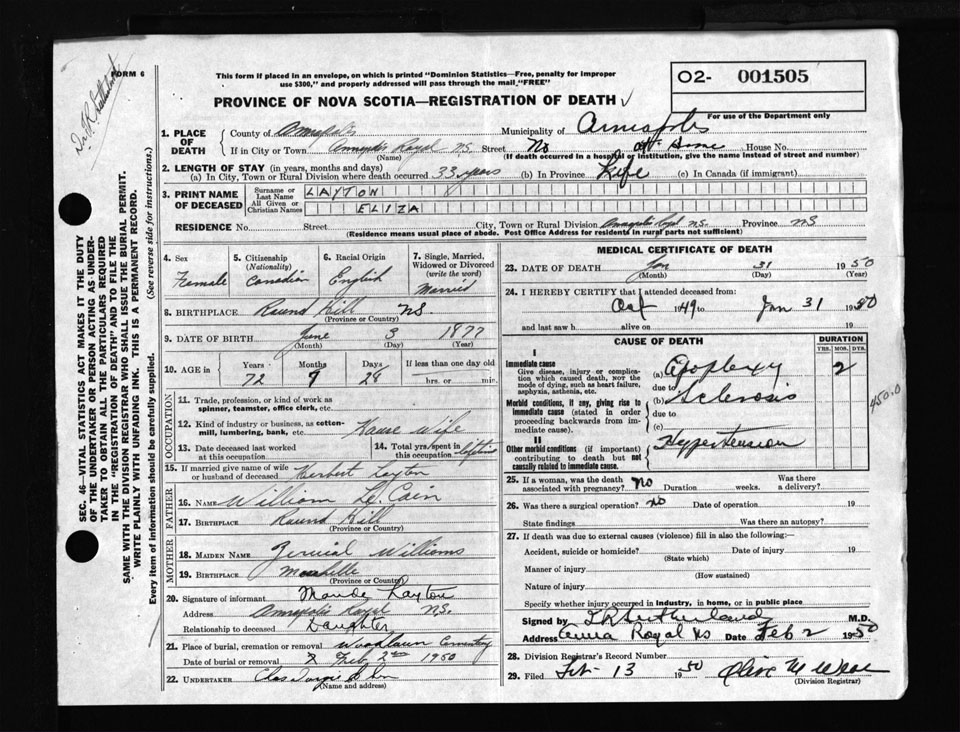 FORM 6
This form if placed in an envelope, on which is printed "Dominion Statistics—Free, penalty for improper
use $300," and properly addressed will pass through the mail "FREE"
O2- 001505
For use of the Department only
PROVINCE OF NOVA SCOTIA—REGISTRATION OF DEATH
1. PLACE OF DEATH
County of Annapolis Municipality of Annapolis
If in City or Town Annapolis Royal N.S. Street No At Home House No.
(Name) (If death occurred in a hospital or institution, give the name instead of street and number)
2. LENGTH OF STAY (in years, months and days)
(a) In City, Town or Rural Division where death occurred 33 years (b) In Province Life (c) In Canada (if immigrant)
3. PRINT NAME OF DECEASED
Surname or Last Name LAYTON
All Given or Christian Names ELIZA
RESIDENCE No. Street City, Town or Rural Division Annapolis Royal N.S. Province NS
(Residence means usual place of abode. Post Office Address for residents in rural parts not sufficient)
4. Sex
Female
5. Citizenship (Nationality)
Canadian
6. Racial Origin
English
7. Single, Married, Widowed or Divorced (write the word)
Married
8. BIRTHPLACE Round Hill NS.
(Province or Country)
9. DATE OF BIRTH June 3 1877
(Month) (Day) (Year)
10. AGE in Years Months Days If less than one day old
72 9 28 hrs. or min.
OCCUPATION
11. Trade, profession, or kind of work as spinner, teamster, office clerk, etc.
12. Kind of industry or business, as cotton-mill, lumbering, bank, etc. House wife
13. Date deceased last worked at this occupation
14. Total yrs. spent in this occupation lifetime
15. If married give name of wife or husband of deceased Herbert Layton
FATHER
16. NAME William Cain
17. BIRTHPLACE Round Hill
(Province or Country)
MOTHER
18. MAIDEN NAME Williams
19. BIRTHPLACE
(Province or Country)
20. Signature of informant Maude Layton
Address Annapolis Royal N.S.
Relationship to deceased Daughter
21. Place of burial, cremation or removal Woodlawn Cemetery
Date of burial or removal Feb 2nd 1950
22. UNDERTAKER
(Name and address)
MEDICAL CERTIFICATE OF DEATH
23. DATE OF DEATH Jan 31 1950
(Month) (Day) (Year)
24. I HEREBY CERTIFY that I attended deceased from:
Oct 1949 to Jan 31 1950
and last saw h alive on 19
CAUSE OF DEATH
DURATION
YRS. MOS. DYS.
I
Immediate cause
Give disease, injury or complication which caused death, not the mode of dying, such as heart failure, asphyxia, asthenia, etc.
(a) Apoplexy 2
due to
Morbid conditions, if any, giving rise to immediate cause (stated in order proceeding backwards from immediate cause).
(b) Sclerosis
due to
(c)
450.0
II
Other morbid conditions (if important) contributing to death but not causally related to immediate cause.
Hypertension
25. If a woman, was the death associated with pregnancy? No Duration weeks. Was there a delivery?
26. Was there a surgical operation? No Date of operation 19
State findings Was there an autopsy?
27. If death was due to external causes (violence) fill in also the following:—
Accident, suicide or homicide? Date of injury 19
(State which)
Manner of injury
(How sustained)
Nature of injury
Specify whether injury occurred in industry, in home, or in public place
Signed by Sutherland M.D.
Address Anna Royal NS Date Feb 2 1950
28. Division Registrar's Record Number
29. Filed Feb 13 1950
(Division Registrar)
SEC. 46 VITAL STATISTICS ACT MAKES IT THE DUTY
OF THE UNDERTAKER OR PERSON ACTING AS UNDER-
TAKER TO OBTAIN ALL THE PARTICULARS REQUIRED
IN THE "REGISTRATION OF DEATH" AND TO FILE THE
SAME WITH THE DIVISION REGISTRAR WHO SHALL ISSUE THE BURIAL PERMIT.
WRITE PLAINLY WITH UNFADING INK. THIS IS A PERMANENT RECORD.
Every item of information should be carefully supplied. (See reverse side for instructions.)